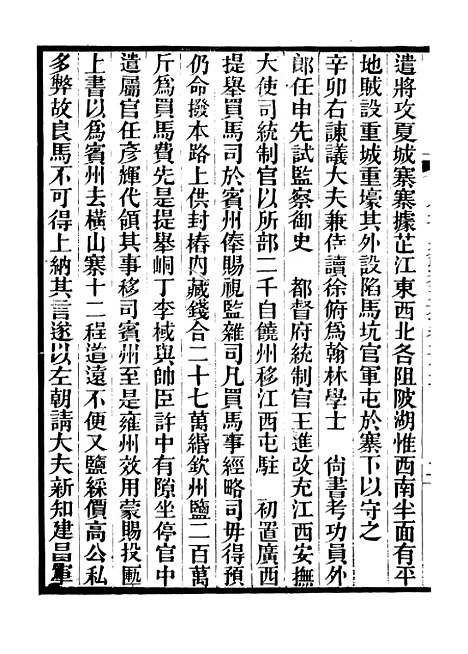 遣將攻夏城寨寨據芷江東西北各阻陂湖惟西南半面有平
地賊設重城重壕其外設陷馬坑官軍屯於寨下以守之
辛卯右諫議大夫兼侍讀徐俯爲翰林學士　尚書考功員外
郎任申先試監察御史　都督府統制官王進改充江西安撫
大使司統制官以所部二千自饒州移江西屯駐　初置廣西
提舉買馬司於賓州俸賜視監雜司凡買馬事經略司毋得預
仍命撥本路上供封樁内藏錢合二十七萬緡欽州鹽二百萬
斤爲買馬費先是提舉峒丁李棫與帥臣許中有隙坐停官中
遣屬官任彥輝代領其事移司賓州至是雍州效用蒙賜投匭
上書以爲賓州去橫山寨十二程道遠不便又鹽綵價高公私
多弊故良馬不可得上納其言遂以左朝請大夫新知建昌軍